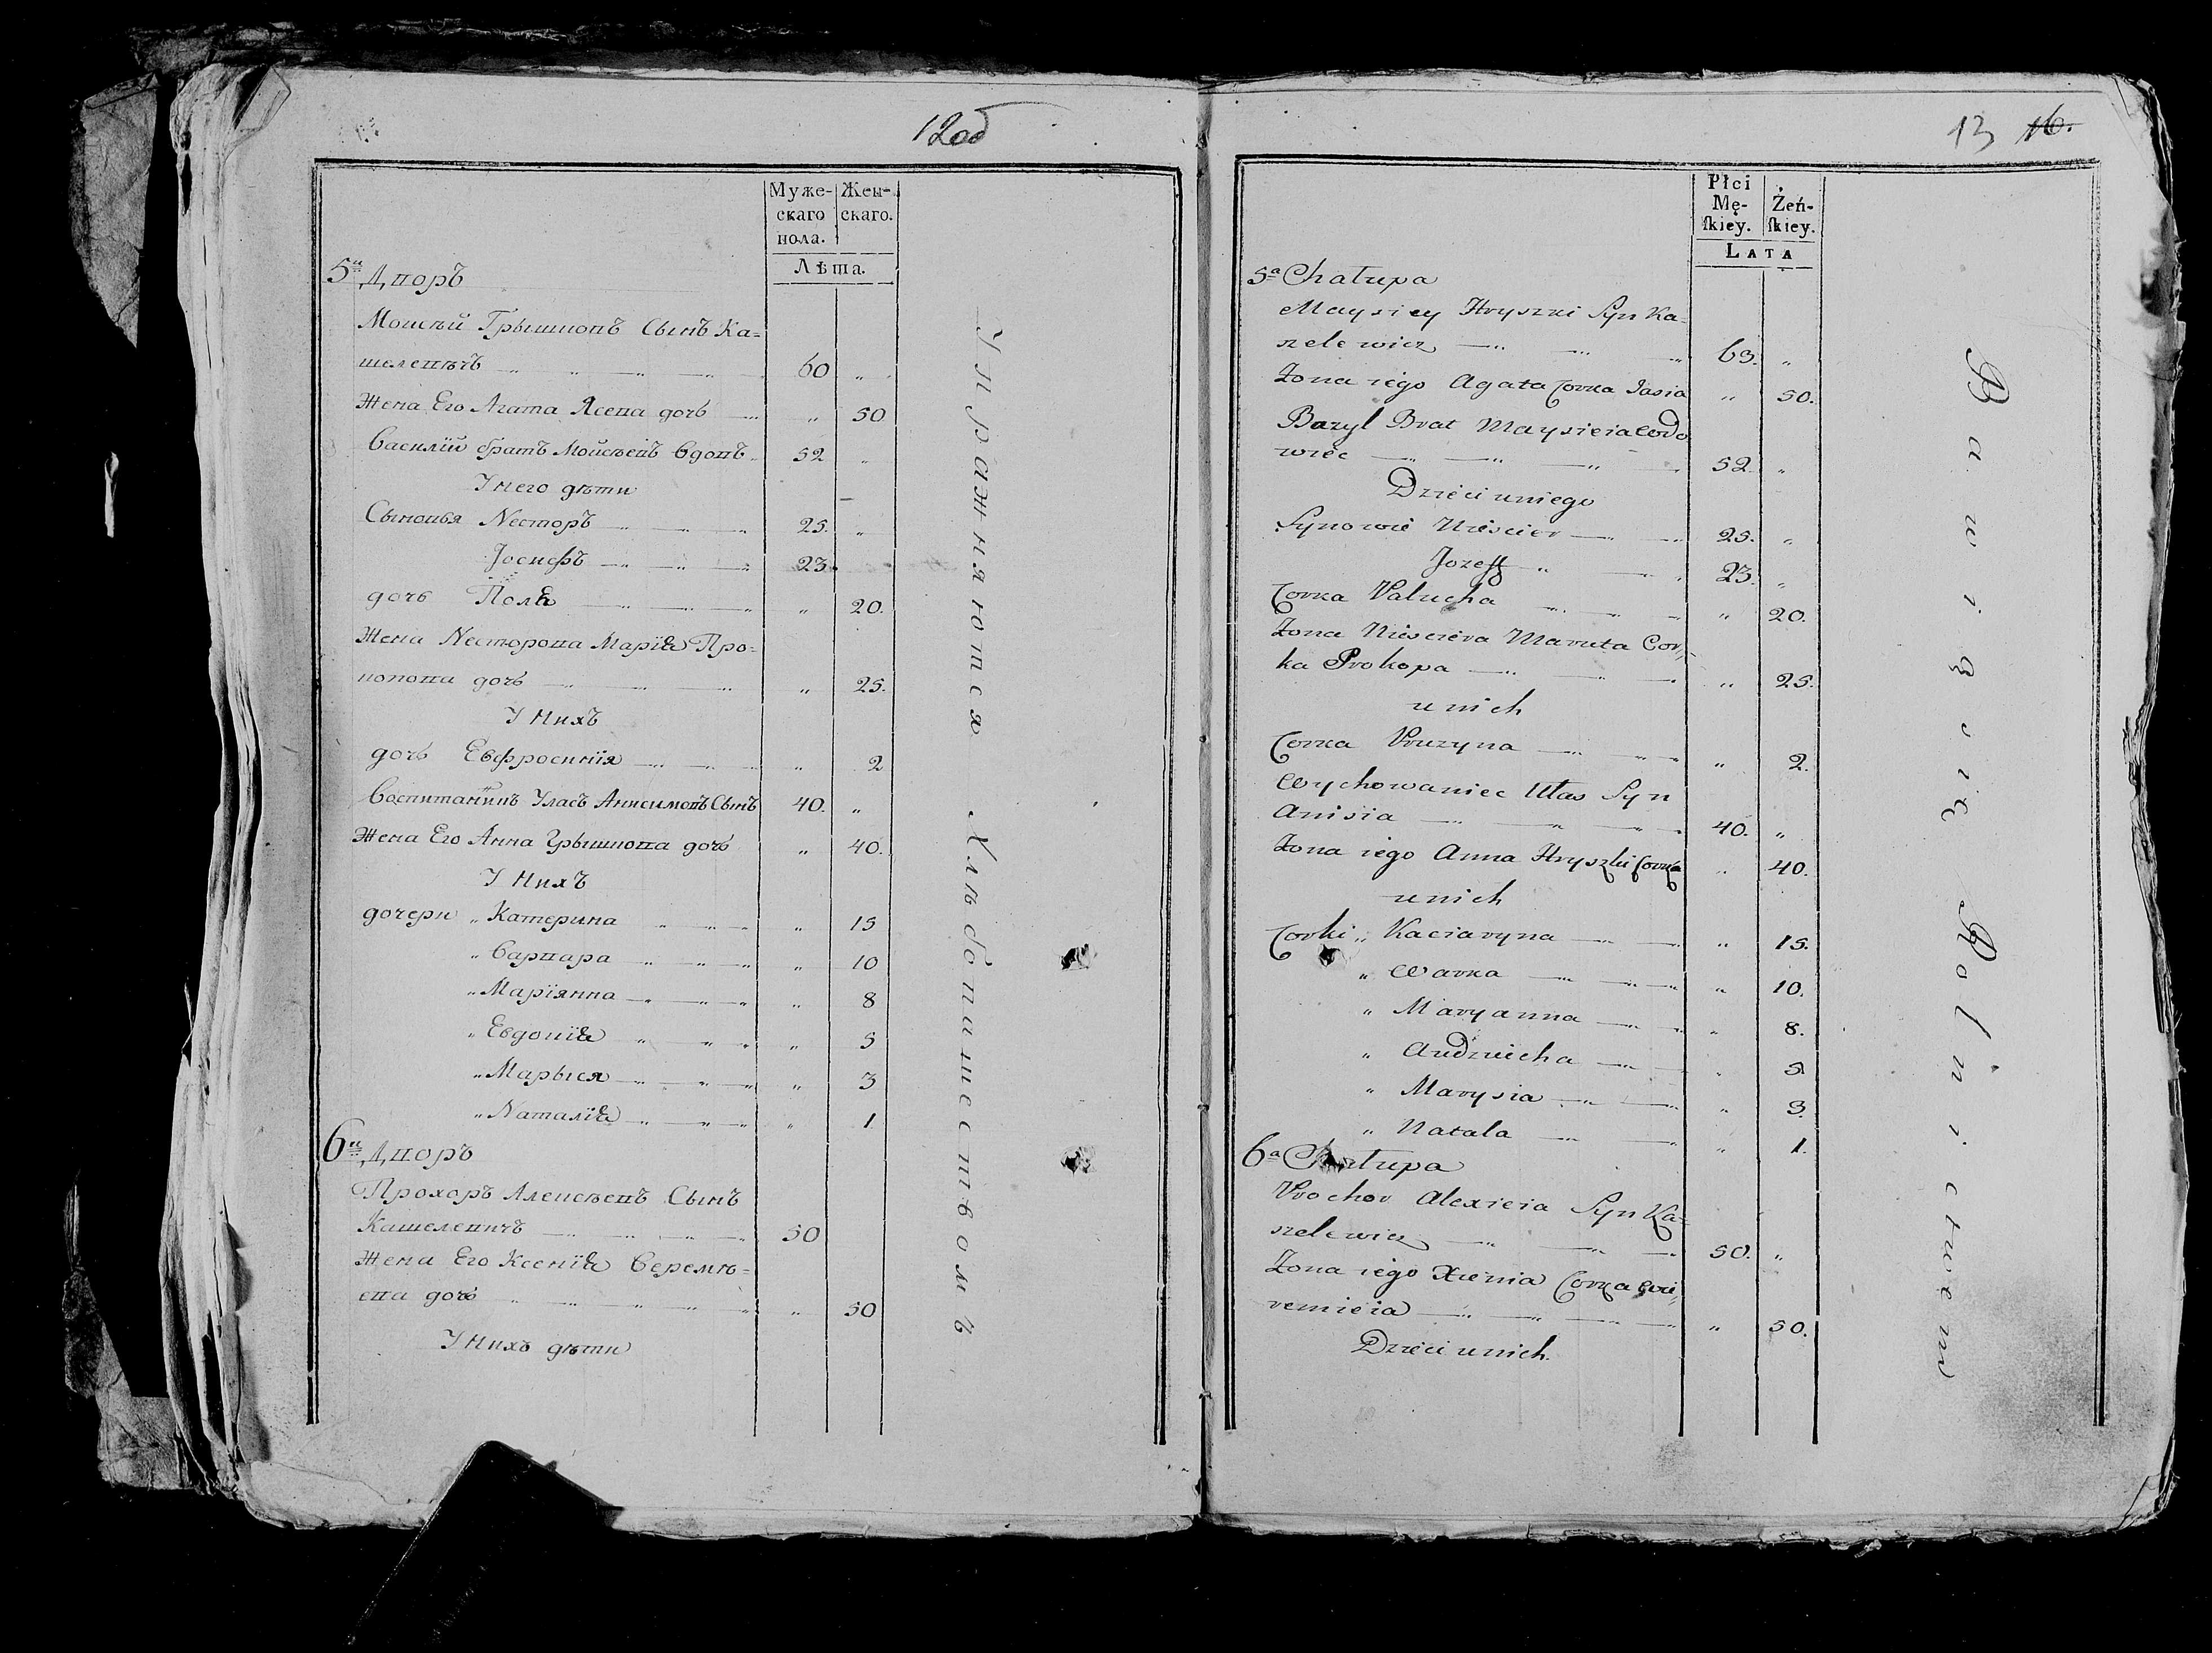 12об
Муже- Жен-
скаго скаго.
пола.
Лѣта.
5й Дворъ
Мойсѣй Грышковъ Сынъ Ка=
шелевичъ 60 „
Жена Его Агата Ясева дочь „ 50
Василій братъ Мойсѣевъ вдовъ 52 „
У него дѣти
Сыновья Несторъ 25. „
Іосифъ 23.
дочь Поля „ 20.
Жена Несторова Марія Про=
копова дочь „ 25.
У Нихъ
дочь Евфросинія „ 2
Воспитаникъ Уласъ Анисимовъ Сынъ 40. „
Жена Его Анна Грышкова дочь „ 40.
У Нихъ
дочери „ Катерина „ 15
„ Варвара „ 10
„ Маріянна „ 8
„ Евдокія „ 5
„ Марыся „ 3
„ Наталія „ 1
6й Дворъ
Прохоръ Алексѣевъ Сынъ
Кашелевичъ 50
Жена Его Ксенія Веремѣ=
ева дочь „ 50
У Нихъ дѣти
Упражняются Хлѣбопашествомъ
13 16.
Płci
Mę- Żeń-
ſkiey. ſkiey.
LATA
5a Chałupa
Maysiey Hryszki Syn Ka-
szelewicz 63. „
Zona iego Agata Corka Jasia „ 50.
Bazyl Brat Maysieia Wdo
wiec 52. „
Dzieci uniego
Synowie Niescier 25. „
Jozeff 23. „
Corka Palucha „ 20.
Zona Niesciera Maruta Cor„
ka Prokopa „ 25.
unich
Corka Pruzyna „ 2.
Wychowaniec Ułas Syn
Anisia 40. „
Zona iego Anna Hryszki Corka „ 40.
unich
Corki „ Kaciaryna „ 15.
„ Warka „ 10.
„ Maryanna „ 8.
„ Audziucha „ 5.
„ Marysia „ 3.
„ Natala „ 1.
6a Chałupa
Prochor Alexieia Syn Ka-
szelewicz 50. „
Zona iego Xienia Corka Wie„
remieia „ 50.
Dzieci unich.
Bawią się Rolnictwem